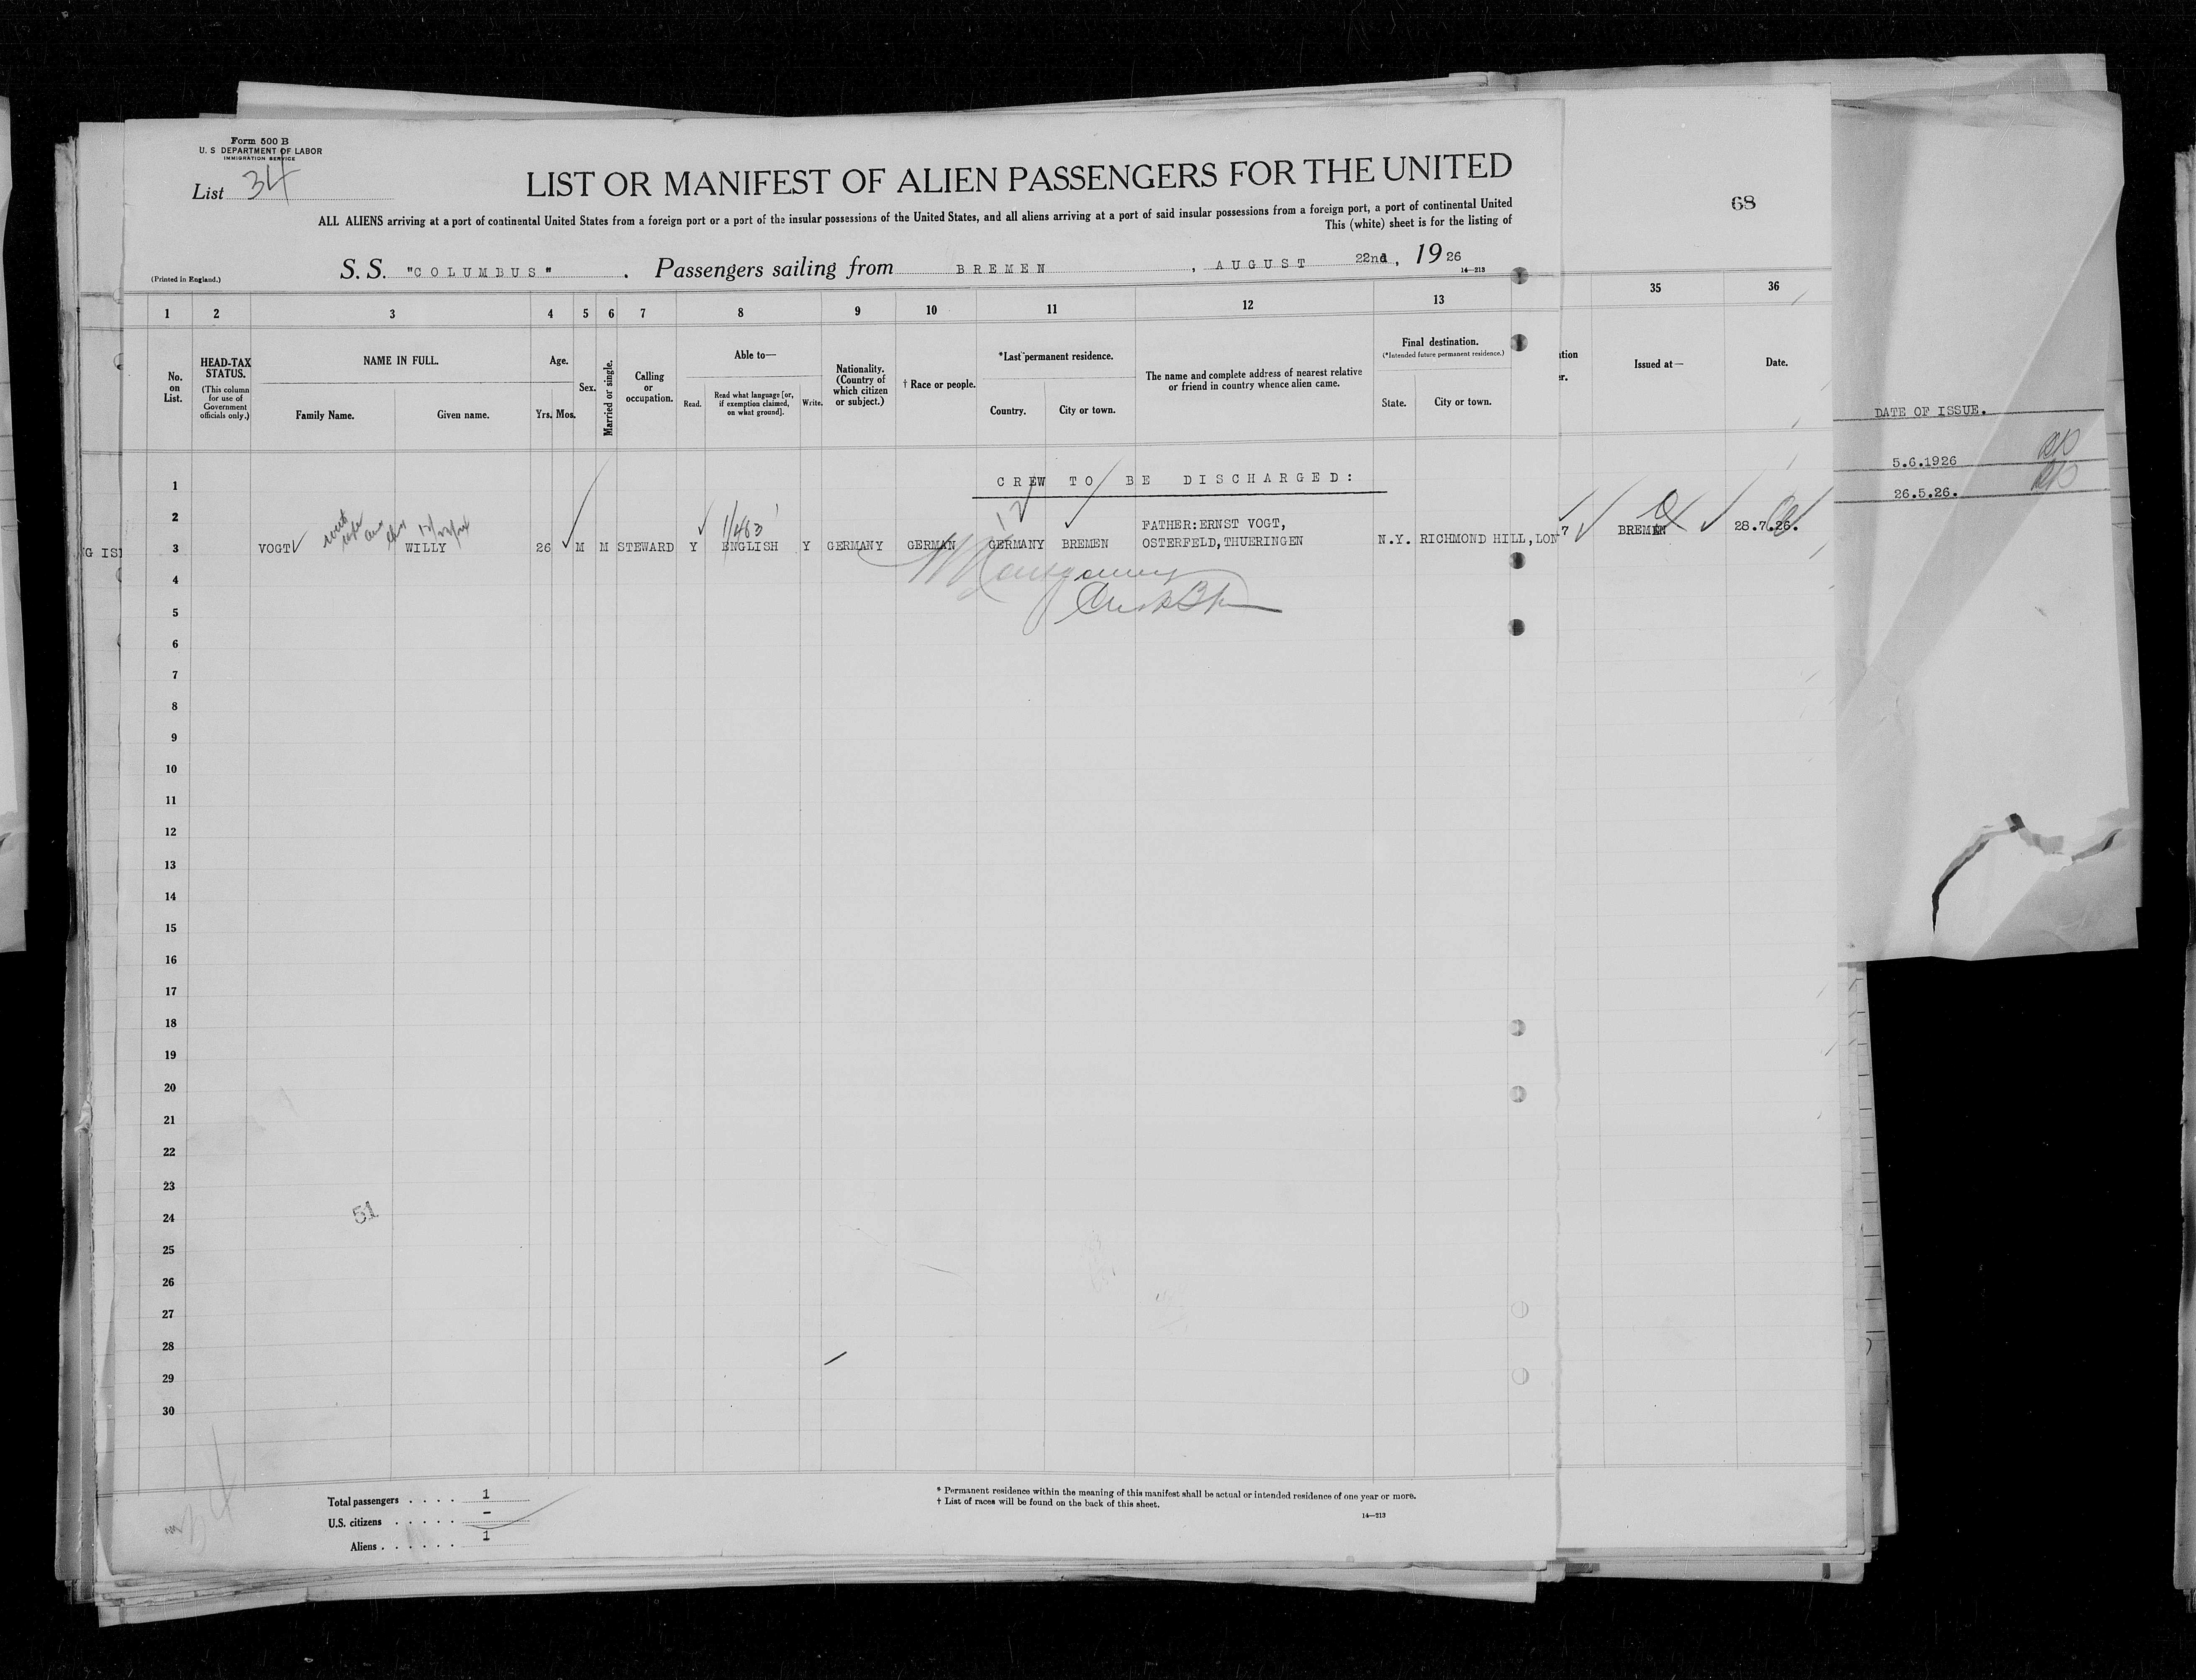 Form 500 B
U. S DEPARTMENT OF LABOR
IMMIGRATION SERVICE
List 34
LIST OR MANIFEST OF ALIEN PASSENGERS FOR THE UNITED
68
ALL ALIENS arriving at a port of continental United States from a foreign port or a port of the insular possessions of the United States, and all aliens arriving at a port of said insular possessions from a foreign port, a port of continental United
This (white) sheet is for the listing of
(Printed in England.)
S. S. "COLUMBUS" . Passengers sailing from BREMEN , AUGUST 22nd, 1926
14—213
1 2 3 4 5 6 7 8 9 10 11 12 13 35 36
No. on List.
HEAD-TAX STATUS.
(This column for use of Government officials only.)
NAME IN FULL.
Family Name. Given name.
Age.
Yrs. Mos.
Sex.
Married or single.
Calling or occupation.
Able to—
Read. Read what language [or, if exemption claimed, on what ground]. Write.
Nationality. (Country of which citizen or subject.)
† Race or people.
*Last permanent residence.
Country. City or town.
The name and complete address of nearest relative or friend in country whence alien came.
Final destination.
(*Intended future permanent residence.)
State. City or town.
Issued at—
Date.
DATE OF ISSUE.
5.6.1926
26.5.26.
1
CREW TO BE DISCHARGED:
2
1/483
FATHER:ERNST VOGT,
G IS
3 VOGT WILLY 26 M M STEWARD Y ENGLISH Y GERMANY GERMAN GERMANY BREMEN OSTERFELD,THUERINGEN N.Y. RICHMOND HILL,LON 7 BREMEN 28.7.26.
4
5
6
7
8
9
10
11
12
13
14
15
16
17
18
19
20
21
22
23
24
51
25
26
27
28
29
30
Total passengers . . . . 1
U.S. citizens . . . . . –
Aliens . . . . . . 1
* Permanent residence within the meaning of this manifest shall be actual or intended residence of one year or more.
† List of races will be found on the back of this sheet.
14—213